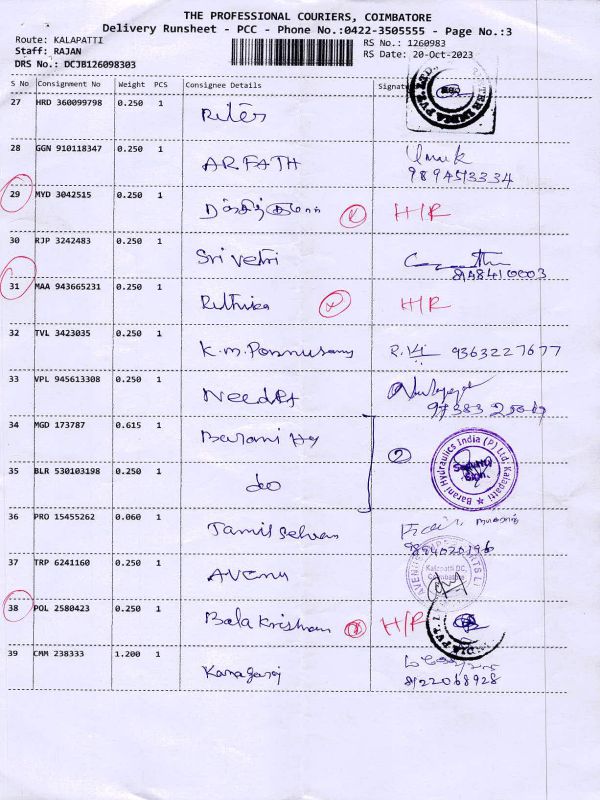 THE PROFESSIONAL COURIERS, COIMBATORE
Delivery Runsheet - PCC - Phone No.:0422-3505555 - Page No.:3
Route: KALAPATTI
RS No.: 1260983
Staff: RAJAN
RS Date: 20-Oct-2023
DRS No.: DCJB126098303
S No Consignment No Weight PCS Consignee Details Signature
27 HRD 360099798 0.250 1
28 GGN 910118347 0.250 1 ARFATH
9894513334
29 MYD 3042515 0.250 1 H/R
30 RJP 3242483 0.250 1 Sri Vetri
31 MAA 943665231 0.250 1 Rithika H/R
32 TVL 3423035 0.250 1 K.m.Ponnusamy 9363227677
33 VPL 945613308 0.250 1
34 MGD 173787 0.615 1 Barani Hy 2
Barani Hydraulics India (P) Ltd. Kalapatti
35 BLR 530103198 0.250 1 do
36 PRO 15455262 0.060 1 Tamil Selvan
9894020196
37 TRP 6241160 0.250 1 Avenu
Kalapatti DC,
38 POL 2580423 0.250 1 Bala Krishnan H/R
39 CMM 238333 1.200 1 Kanagaraj
8122068928